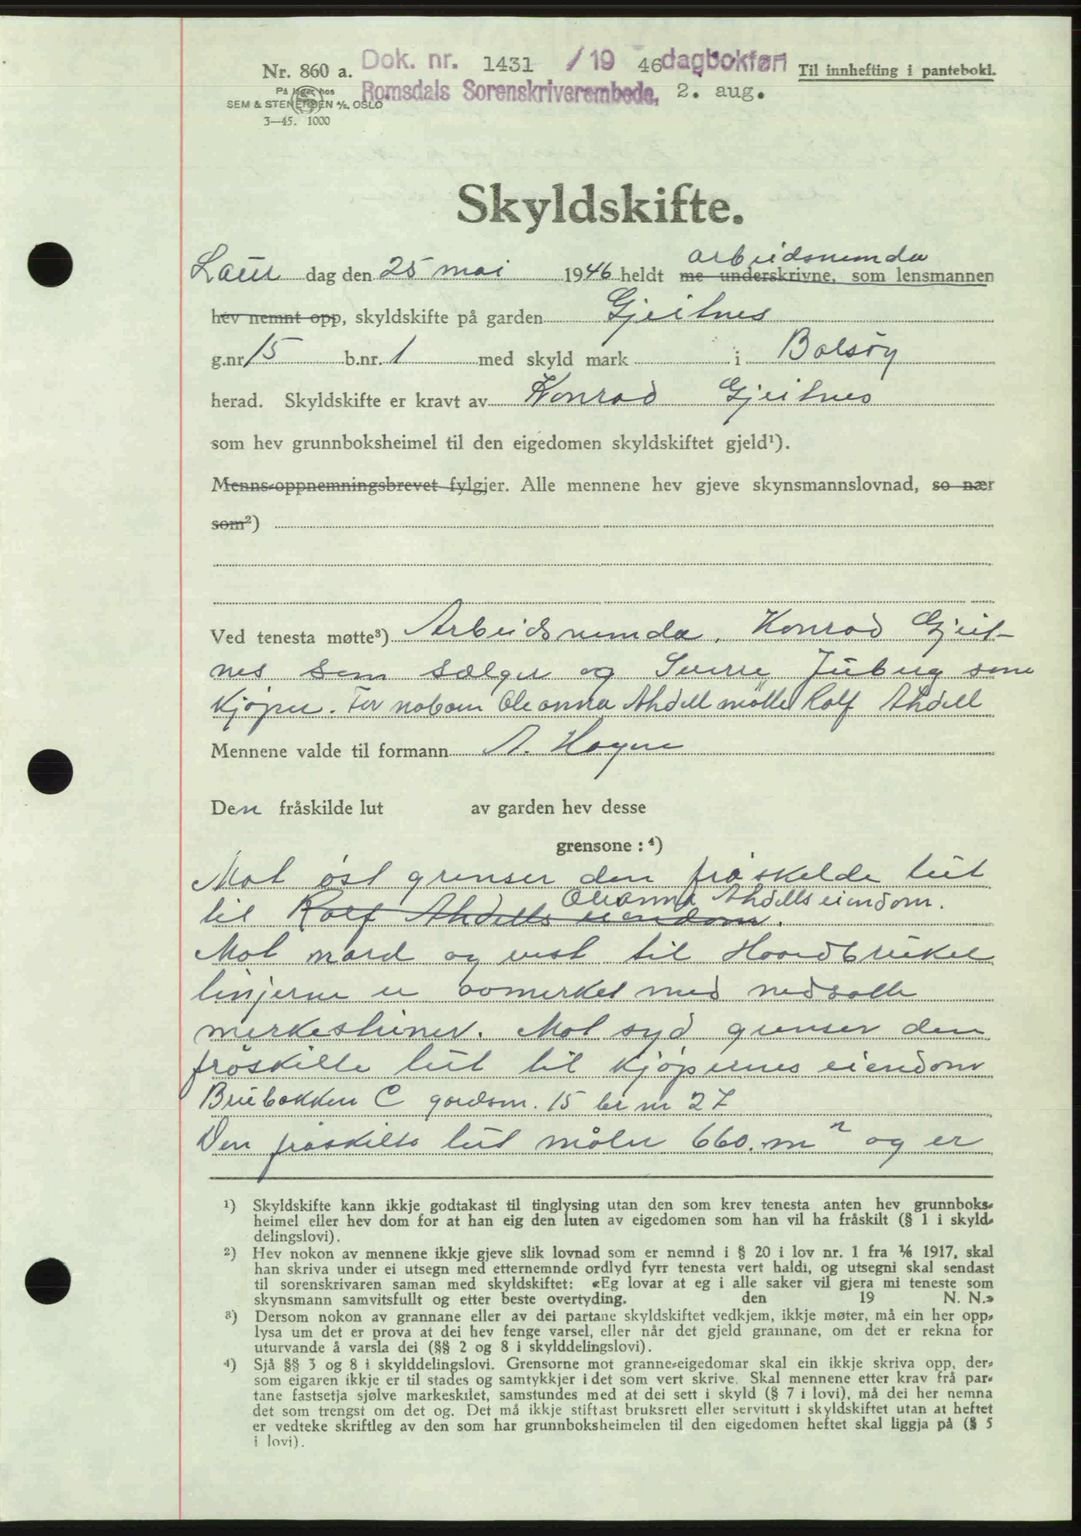 Nr. 860 a. Dok. nr. 1431 /19 46 dagbokført Til innhefting i panteboki.
På lager hos Romsdals Sorenskriverembede, 2. aug.
SEM & STENERSEN A/S, OSLO
3—45. 1000
Skyldskifte.
arbeidsnemda
Laur dag den 25 mai 1946 heldt me underskrivne, som lensmannen
hev nemnt opp, skyldskifte på garden Gjeitnes
g.nr. 15 b.nr. 1 med skyld mark i Bolsøy
herad. Skyldskifte er kravt av Konrad Gjeitnes
som hev grunnboksheimel til den eigedomen skyldskiftet gjeld¹).
Menns-oppnemningsbrevet fylgjer. Alle mennene hev gjeve skynsmannslovnad, so nær
som²)
Ved tenesta møtte³) Arbeidsnemda, Konrad Gjeit-
nes som sælger og Sverre Juberg som
kjøper. For naboen Oleanna Ahdell møtte Rolf Ahdell
Mennene valde til formann A. Hagne
Den fråskilde lut av garden hev desse
grensone: ⁴)
Mot øst grenser den fråskilde lut
Oleanna Ahdells eiendom.
til Rolf Ahdells eiendom.
Mot nord og vest til Hovedbruket
linjerne er avmerket med nedsatte
merkesteiner. Mot syd grenser den
fråskilte lut til kjøpernes eiendom
Bruibakken C gardsnr. 15 br nr 27
Den fråskilte lut måler 660 m² og er
¹) Skyldskifte kann ikkje godtakast til tinglysing utan den som krev tenesta anten hev grunnboks-
heimel eller hev dom for at han eig den luten av eigedomen som han vil ha fråskilt (§ 1 i skyld-
delingslovi).
²) Hev nokon av mennene ikkje gjeve slik lovnad som er nemnd i § 20 i lov nr. 1 fra 1/6 1917, skal
han skriva under ei utsegn med etternemnde ordlyd fyrr tenesta vert haldi, og utsegni skal sendast
til sorenskrivaren saman med skyldskiftet: «Eg lovar at eg i alle saker vil gjera mi teneste som
skynsmann samvitsfullt og etter beste overtyding. den 19 N. N.»
³) Dersom nokon av grannane eller av dei partane skyldskiftet vedkjem, ikkje møter, må ein her opp-
lysa um det er prova at dei hev fenge varsel, eller når det gjeld grannane, om det er rekna for
uturvande å varsla dei (§§ 2 og 8 i skylddelingslovi).
⁴) Sjå §§ 3 og 8 i skylddelingslovi. Grensorne mot granne-eigedomar skal ein ikkje skriva opp, der-
som eigaren ikkje er til stades og samtykkjer i det som vert skrive. Skal mennene etter krav frå par-
tane fastsetja sjølve markeskilet, samstundes med at dei sett i skyld (§ 7 i lovi), må dei her nemna
det som trengst om det og. Det må ikkje stiftast bruksrett eller servitutt i skyldskiftet utan at heftet
er vedteke skriftleg av den som har grunnboksheimelen til den eigedomen heftet skal liggja på (§ 5
i lovi).